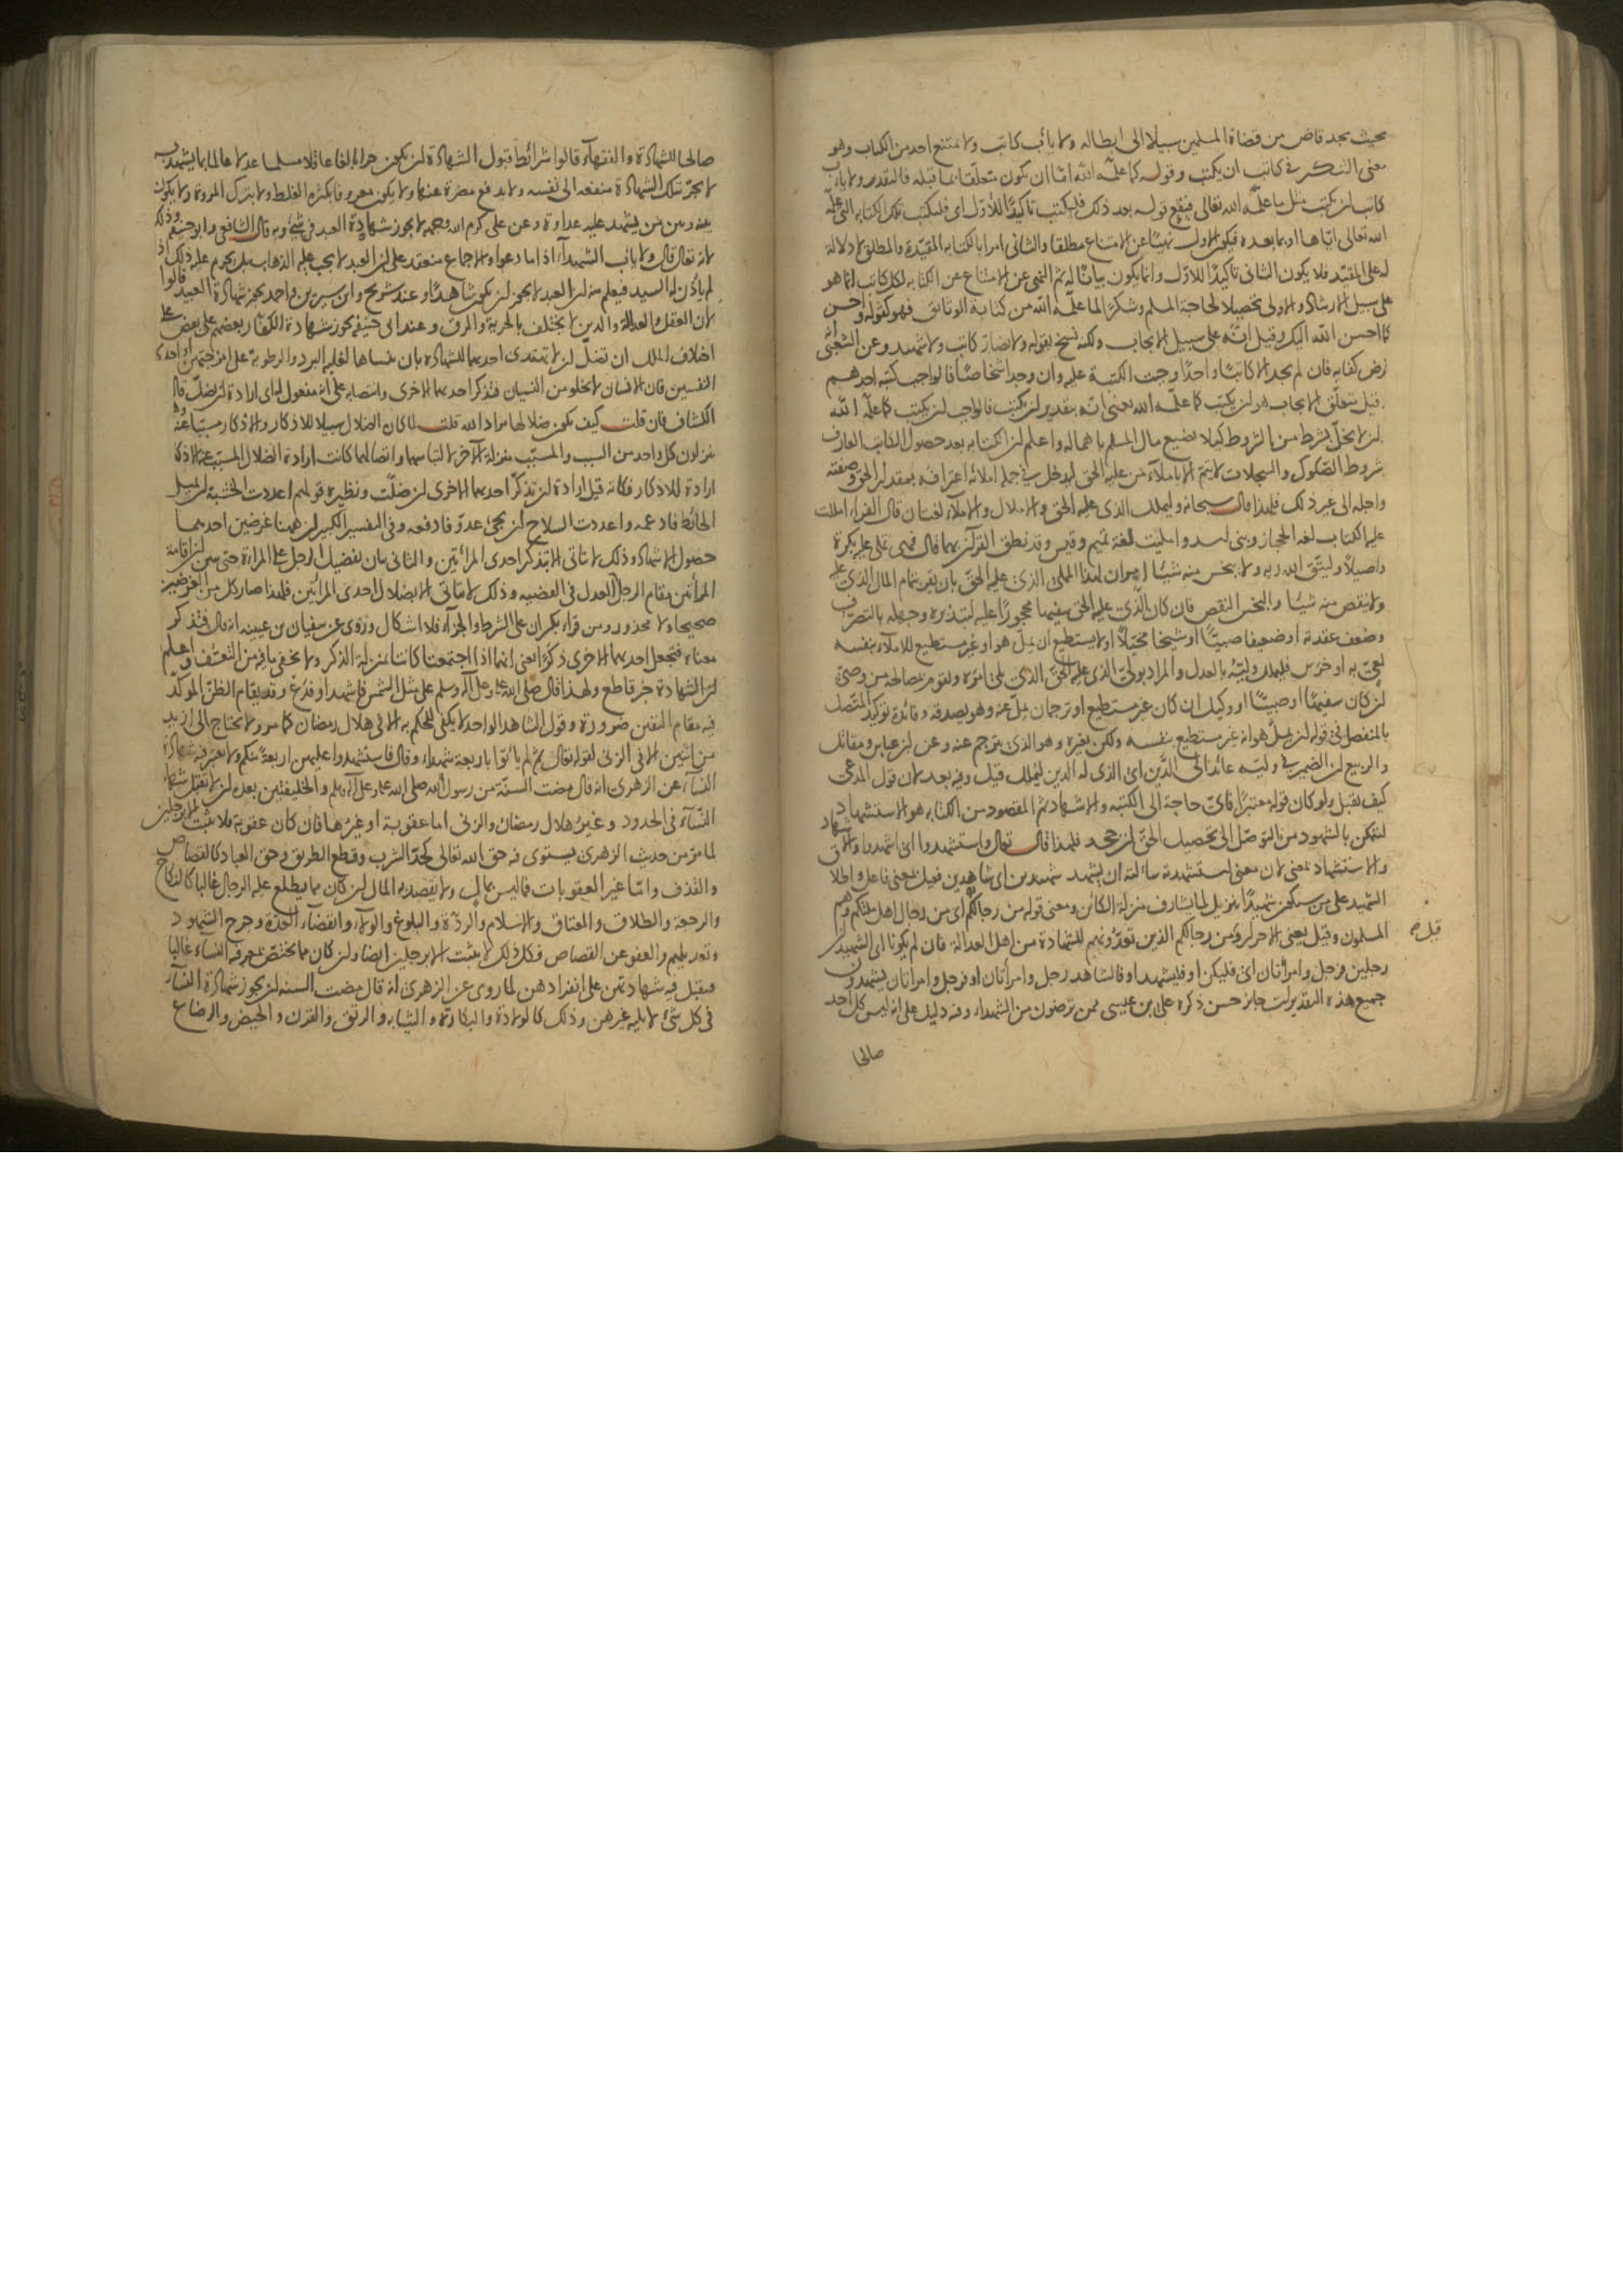 بحيث يجد قاض من قضاة المسلمين سبيلا الى ابطاله ولا يأب كاتب ولا يمتنع احد من الكتاب وهو
معنى التنكير في كاتب ان يكتب وقوله كما علمه الله اما ان يكون متعلقا بما قبله فالتقدير ولا يأب
كاتب ان يكتب مثل ما علمه الله تعالى فيقع قوله بعد ذلك فليكتب تأكيدا للاول اى فليكتب تلك الكتابة التي علمه
الله تعالى اياها او بما بعده فيكون الاول نهيا عن الامتناع مطلقا والثانى امرا بالكتابة المقيدة والمطلق لا دلالة
له على المقيد فلا يكون الثانى تأكيدا للاول وانما يكون بيانا له ثم النهى عن الامتناع عن الكتابة لكل كاتب انما هو
على سبيل الارشاد والاولى تحصيلا لحاجة المسلم وشكرا لما علمه الله من كتابة الوثائق فهو كقوله واحسن
كما احسن الله اليك وقيل انه على سبيل الايجاب ولكنه نسخ بقوله ولا يضار كاتب ولا شهيد وعن الشعبى انه
فرض كفاية فان لم يجد الا كاتبا واحدا وجبت الكتبة عليه وان وجد اشخاصا فالواجب كتبة احدهم
قيل متعلق الايجاب هو ان يكتب كما علمه الله يعنى انه بتقدير ان يكتب فالواجب ان يكتب كما علمه الله
ان لا يخل بشرط من الشروط كيلا يضيع مال المسلم باهماله واعلم ان الكتابة بعد حصول الكاتب العارف
بشروط الصكوك والسجلات لا يتم الا باملاء من عليه الحق ليدخل في جملة املائه اعترافه بمقدار الحق وصفته
واجله الى غير ذلك فلهذا قال سبحانه وليملل الذى عليه الحق والاملال والاملاء لغتان قال الفراء امللت
عليه الكتاب لغة الحجاز وبنى اسد وامليت لغة تميم وقيس وقد نطق القرآن بهما قال فهى تملى عليه بكرة
واصيلا وليتق الله ربه ولا يبخس منه شيئا امران لهذا المملى الذى عليه الحق بان يقر بتمام المال الذى عليه
ولا ينقص منه شيئا والبخس النقص فان كان الذى عليه الحق سفيها محجورا عليه لتبذيره وجهله بالتصرف
وضعف عقله او ضعيفا صبيا او شيخا مختلا او لا يستطيع ان يمل هو او غير مستطيع للاملاء بنفسه
لعى به او خرس فليملل وليه بالعدل والمراد بولى الذى عليه الحق الذى يلى امره ويقوم بمصالحه من وصى
ان كان سفيها او صبيا او وكيل ان كان غير مستطيع او ترجمان يمل عنه وهو يصدقه وفائدة توكيد المتصل
بالمنفصل في قوله ان يمل هو انه غير مستطيع بنفسه ولكن بغيره وهو الذى يترجم عنه وعن ابن عباس ومقاتل
والربيع ان الضمير في وليه عائد الى الدين اى الذى له الدين ليملل قيل وفيه بعد لان قول المدعى
كيف يقبل ولو كان قوله معتبرا فاى حاجة الى الكتبة والاشهاد ثم المقصود من الكتابة هو الاستشهاد
ليتمكن بالشهود من التوصل الى تحصيل الحق ان جحد فلهذا قال تعالى واستشهدوا اى اشهدوا والاشهاد
والاستشهاد بمعنى لان معنى استشهدته سألته ان يشهد شهيدين اى شاهدين فعيل بمعنى فاعل واطلاق
الشهيد على من سيكون شهيدا تنزيل لما يشارف منزلة الكائن ومعنى قوله من رجالكم اى من رجال اهل ملتكم وهم
المسلمون وقيل يعنى الاحرار وقيل من رجالكم الذين تعدونهم للشهادة من اهل العدالة فان لم يكونا اى الشهيدان
رجلين فرجل وامرأتان اى فليكن او فليشهد او فالشاهد رجل وامرأتان او فرجل وامرأتان يشهدون
جميع هذه التقديرات جائز حسن ذكره على بن عيسى ممن ترضون من الشهداء وفيه دليل على انه ليس كل احد
صالحا
قيل صح
صالحا للشهادة والفقهاء قالوا شرائط قبول الشهادة ان يكون حرا بالغا عاقلا مسلما عدلا عالما بما يشهد به
لا يجر بتلك الشهادة منفعة الى نفسه ولا يدفع مضرة عنها ولا يكون معروفا بكثرة الغلط ولا بترك المروة ولا يكون
بينه وبين من يشهد عليه عداوة وعن على كرم الله وجهه لا يجوز شهادة العبد في شئ وبه قال الشافعى وابو حنيفة وذلك
لانه تعالى قال ولا يأب الشهداء اذا ما دعوا والاجماع منعقد على ان العبد لا يجب عليه الذهاب بل يحرم عليه ذلك اذا
لم يأذن له السيد فيعلم منه ان العبد لا يجوز ان يكون شاهدا وعند شريح وابن سيرين واحمد يجوز شهادة العبيد قالوا
لان العقل والعدالة والدين لا يختلف بالحرية والرق وعند ابى حنيفة يجوز شهادة الكفار بعضهم على بعض على
اختلاف الملل ان تضل ان لا تهتدى احديهما للشهادة بان تنساها لغلبة البرد والرطوبة على امزجتهن او احدى
النفسين فان الانسان لا يخلو من النسيان فتذكر احديهما الاخرى وانتصابه على انه مفعول له اى ارادة ان تضل قال
الكشاف فان قلت كيف تكون ضلالها مرادا لله قلت لما كان الضلال سبيلا للاذكار والاذكار مسببا عنه وهم
ينزلون كل واحد من السبب والمسبب منزلة الآخر لالتباسهما واتصالهما كانت ارادة الضلال المسبب عنه الاذكار
ارادة للاذكار فكانه قيل ارادة ان تذكر احديهما الاخرى ان ضلت ونظيره قولهم اعددت الخشبة ان يميل
الحائط فادعمه واعددت السلاح ان يجئ عدو فادفعه وفى التفسير الكبير ان ههنا غرضين احديهما
حصول الاشهاد وذلك لا يتأتى الا بتذكر احدى المرأتين والثانى بيان تفضيل الرجل على المرأة حتى يبين ان اقامة
المرأتين مقام الرجل العدل فى القضية وذلك لا يتأتى الا بضلال احدى المرأتين فلهذا صار كل من الغرضين
صحيحا ولا محذور ومن قرأ بكسر ان على الشرط والجزاء فلا اشكال وروى عن سفيان بن عيينة انه قال فتذكر
معناه فتجعل احديهما الاخرى ذكرا يعنى انهما اذا اجتمعتا كانتا بمنزلة الذكر ولا يخفى ما فيه من التعسف واعلم
ان الشهادة خبر قاطع ولهذا قال صلى الله عليه وعلى آله وسلم على مثل الشمس فاشهد او فدع وقد يقام الظن المؤكد
فيه مقام اليقين ضرورة وقول الشاهد الواحد لا يكفى للحكم به الا فى هلال رمضان كما مر ولا يحتاج الى ازيد
من اثنين الا فى الزنى لقوله تعالى ثم لم يأتوا باربعة شهداء وقال فاستشهدوا عليهن اربعة منكم ولا يعتبر فيه شهادة
النساء عن الزهرى انه قال مضت السنة من رسول الله صلى الله عليه وعلى آله وسلم والخليفتين بعده ان لا تقبل شهادة
النساء فى الحدود وغير هلال رمضان والزنى اما عقوبة او غيرها فان كان عقوبة فلا يثبت الا برجلين
لما مر من حديث الزهرى يستوى فيه حق الله تعالى كحد الشرب وقطع الطريق وحق العباد كالقصاص
والقذف واما غير العقوبات فما ليس بمال ولا يقصد به المال ان كان مما يطلع عليه الرجال غالبا كالنكاح
والرجعة والطلاق والعتاق والاسلام والردة والبلوغ والولاء وانقضاء العدة وجرح الشهود
وتعديلهم والعفو عن القصاص فكل ذلك لا يثبت الا برجلين ايضا وان كان مما يختص بمعرفته النساء غالبا
فيقبل فيه شهادتهن على انفرادهن لما روى عن الزهرى انه قال مضت السنة ان يجوز شهادة النساء
فى كل شئ لا يليه غيرهن وذلك كالولادة والبكارة والثيابة والرتق والقرن والحيض والرضاع